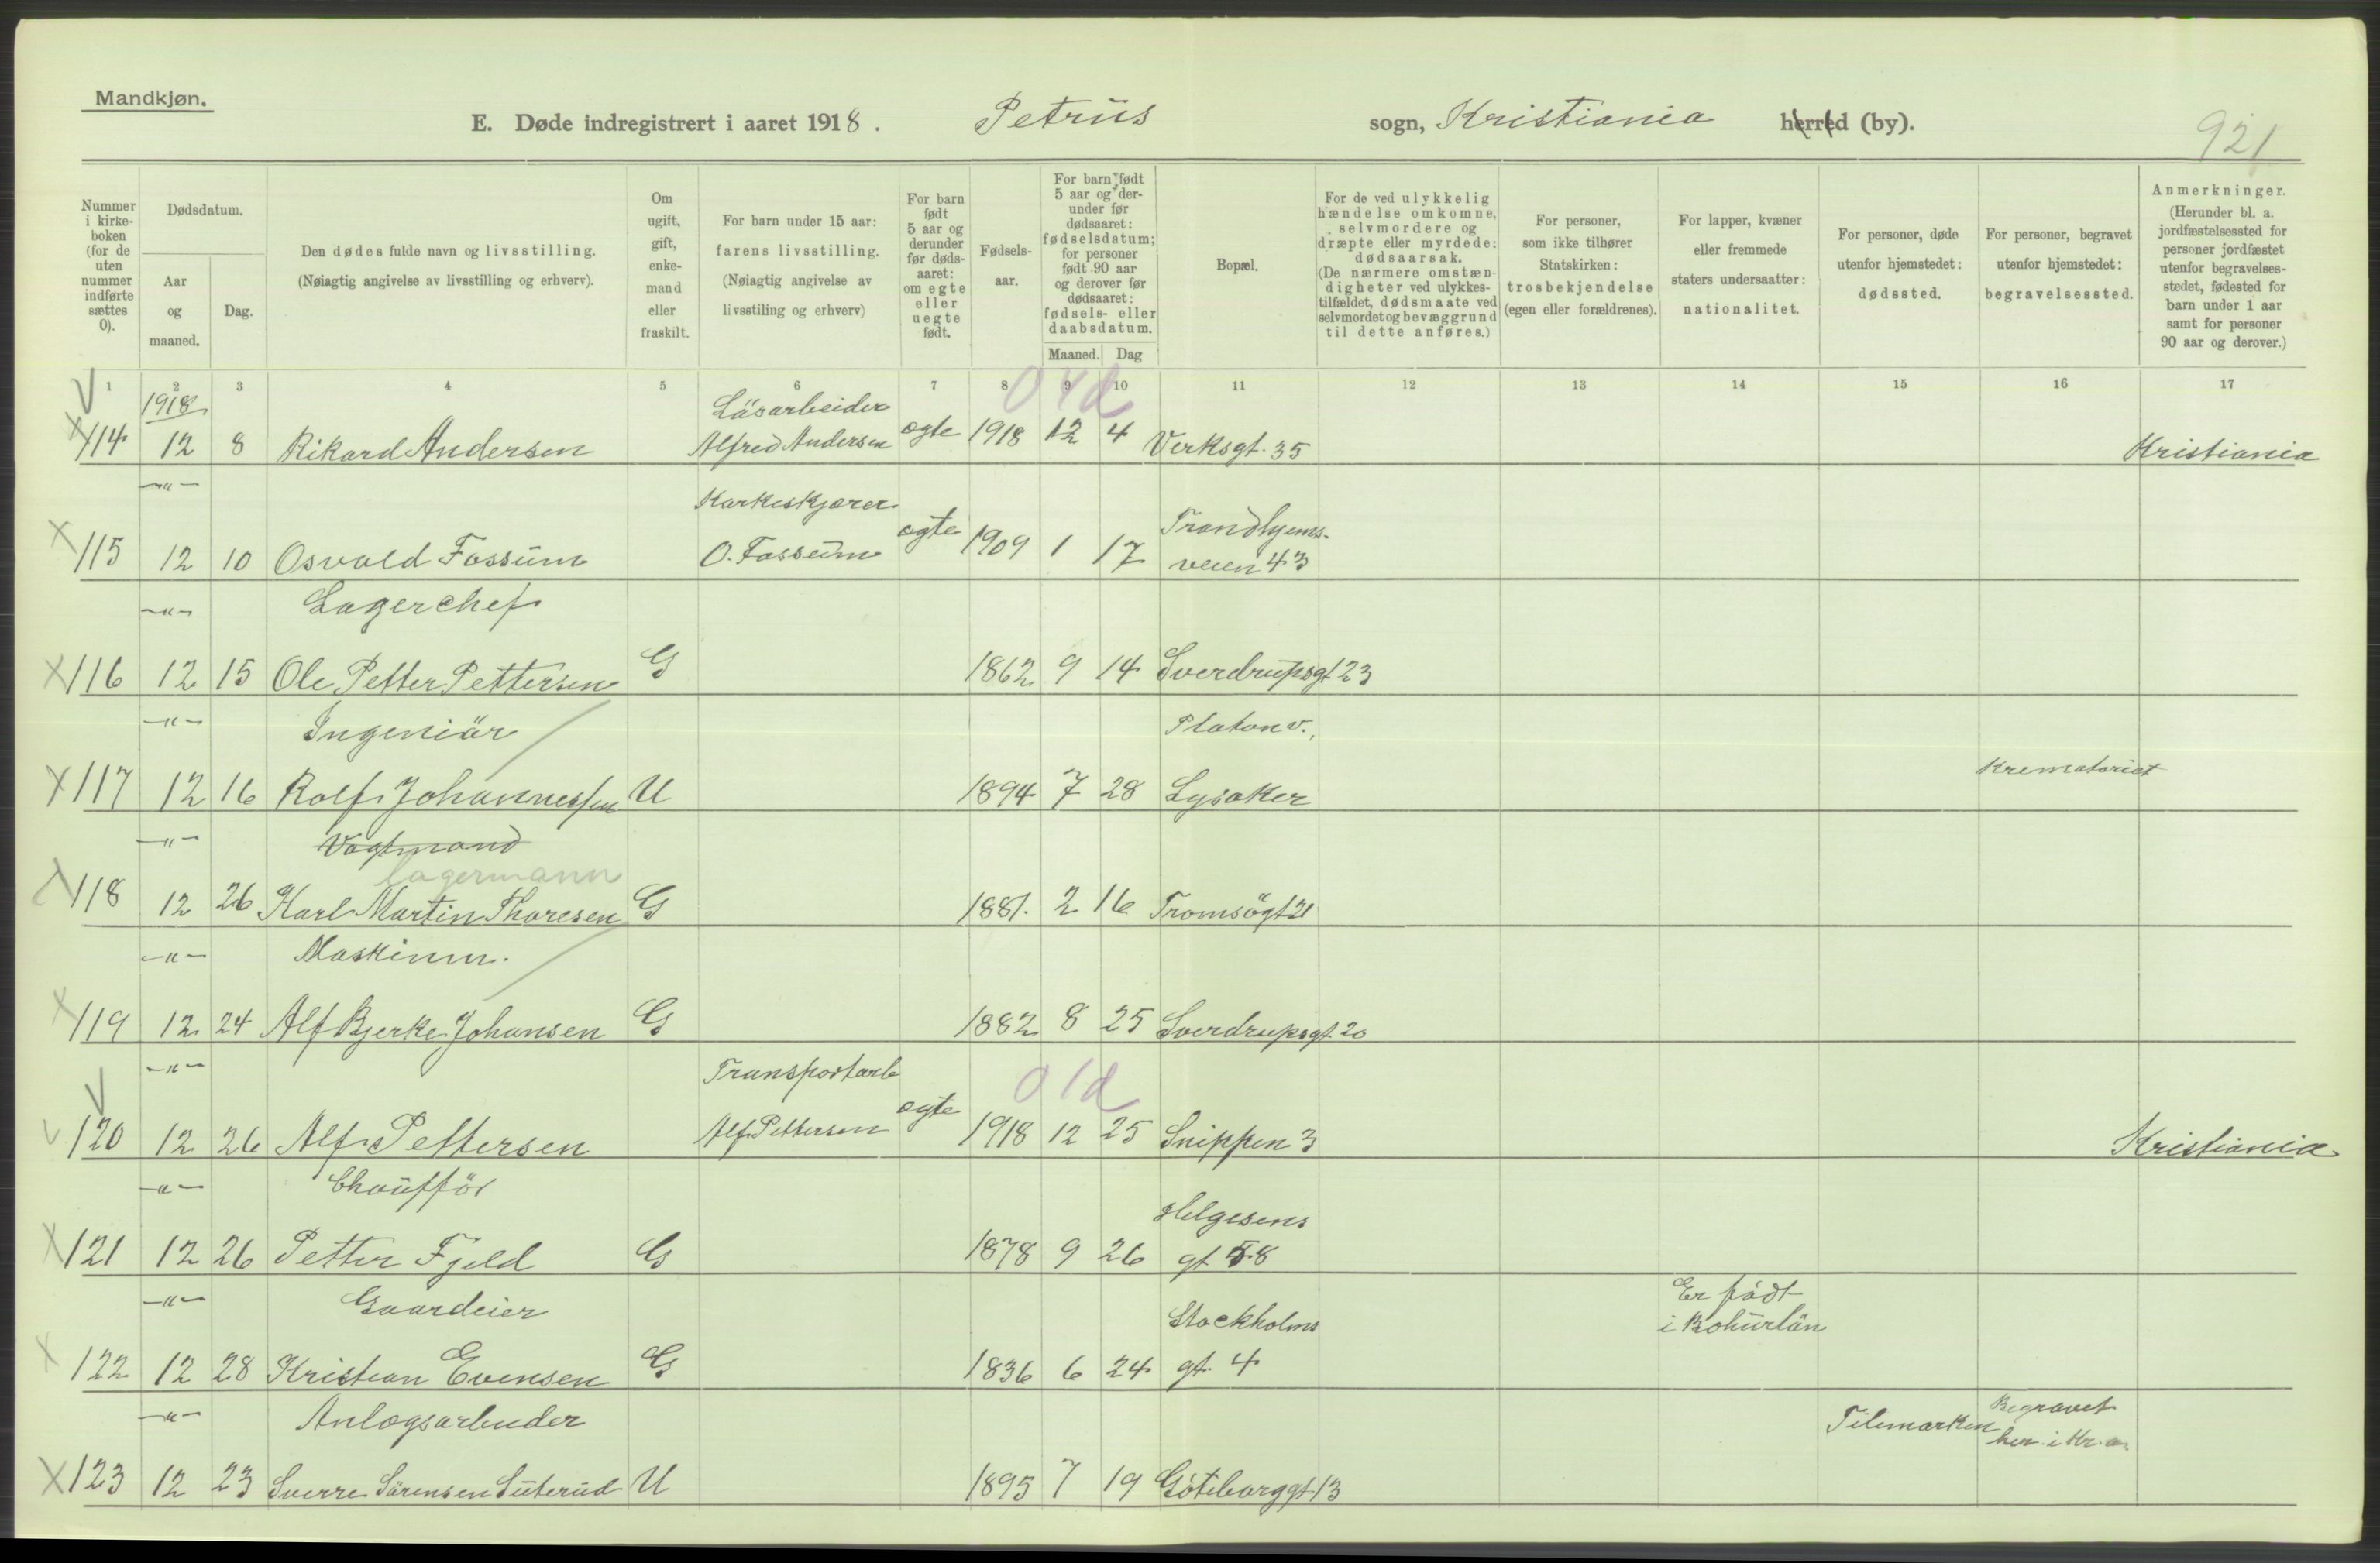 Mandkjøn.
E. Døde indregistrert i aaret 1918. Petrus sogn, Kristiania herred (by).
921
Nummer i kirke-boken (for de uten nummer indførte sættes 0).
Dødsdatum.
Aar og maaned.
Dag.
Den dødes fulde navn og livsstilling.
(Nøiagtig angivelse av livsstilling og erhverv).
Om ugift, gift, enke-mand eller fraskilt.
For barn under 15 aar: farens livsstilling.
(Nøiagtig angivelse av livsstiling og erhverv)
For barn født 5 aar og derunder før døds-aaret: om egte eller uegte født.
Fødsels-aar.
For barn født 5 aar og der-under før dødsaaret: fødselsdatum; for personer født 90 aar og derover før dødsaaret: fødsels- eller daabsdatum.
Maaned. Dag
Bopæl.
For de ved ulykkelig hændelse omkomne, selvmordere og dræpte eller myrdede: dødsaarsak.
(De nærmere omstæn-digheter ved ulykkes-tilfældet, dødsmaate ved selvmordet og bevæggrund til dette anføres.)
For personer, som ikke tilhører Statskirken: trosbekjendelse (egen eller forældrenes).
For lapper, kvæner eller fremmede staters undersaatter: nationalitet.
For personer, døde utenfor hjemstedet: dødssted.
For personer, begravet utenfor hjemstedet: begravelsessted.
Anmerkninger.
(Herunder bl. a. jordfæstelsessted for personer jordfæstet utenfor begravelses-stedet, fødested for barn under 1 aar samt for personer 90 aar og derover.)
1 2 3 4 5 6 7 8 9 10 11 12 13 14 15 16 17
1918 Läsarbeider 04d
114 12 8 Rikard Andersen Alfred Andersen egte 1918 12 4 Verksgt. 35 Kristiania
-"- Korkeskjærer Trondhjems-
115 12 10 Osvald Fossum O. Fossum egte 1909 1 17 veien 43
-"- Lagerchef
116 12 15 Ole Petter Pettersen G 1862 9 14 Sverdrupsgt 23
-"- Ingeniör Platonv., Krematoriet
117 12 16 Rolf Johannessen U 1894 7 28 Lysaker
-"- Vagtmand
lagermann
118 12 26 Karl Martin Thoresen G 1881. 2 16 Tromsögt 21
-"- Maskinm.
119 12 24 Alf Bjerke Johansen G 1882 8 25 Sverdrupsgt. 20
-"- Transportarb 01d
120 12 26 Alf Pettersen Alf Pettersen egte 1918 12 25 Snippen 3 Kristiania
-"- Chaufför Helgesens
121 12 26 Petter Fjeld G 1878 9 26 gt 58
-"- Gaardeier Stockholms Er födt
i Bohuslän
122 12 28 Kristian Evensen G 1836 6 24 gt. 4
-"- Anlægsarbeider Tilemarken Begravet
her i Kr.a.
123 12 23 Sverre Sörensen Suterud U 1895 7 19 Göteborggt 13